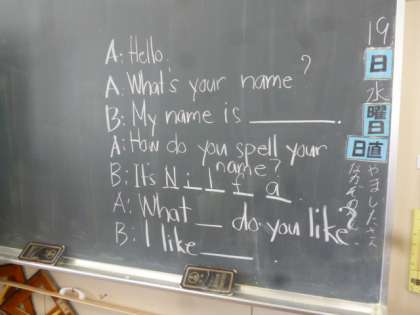 A: Hello.
A: What's your name?
B: My name is ________.
A: How do you spell your
name?
B: It's N i l t a.
A: What __ do you like?
B: I like ____.
19
日
水
曜日
日直
やましたさん